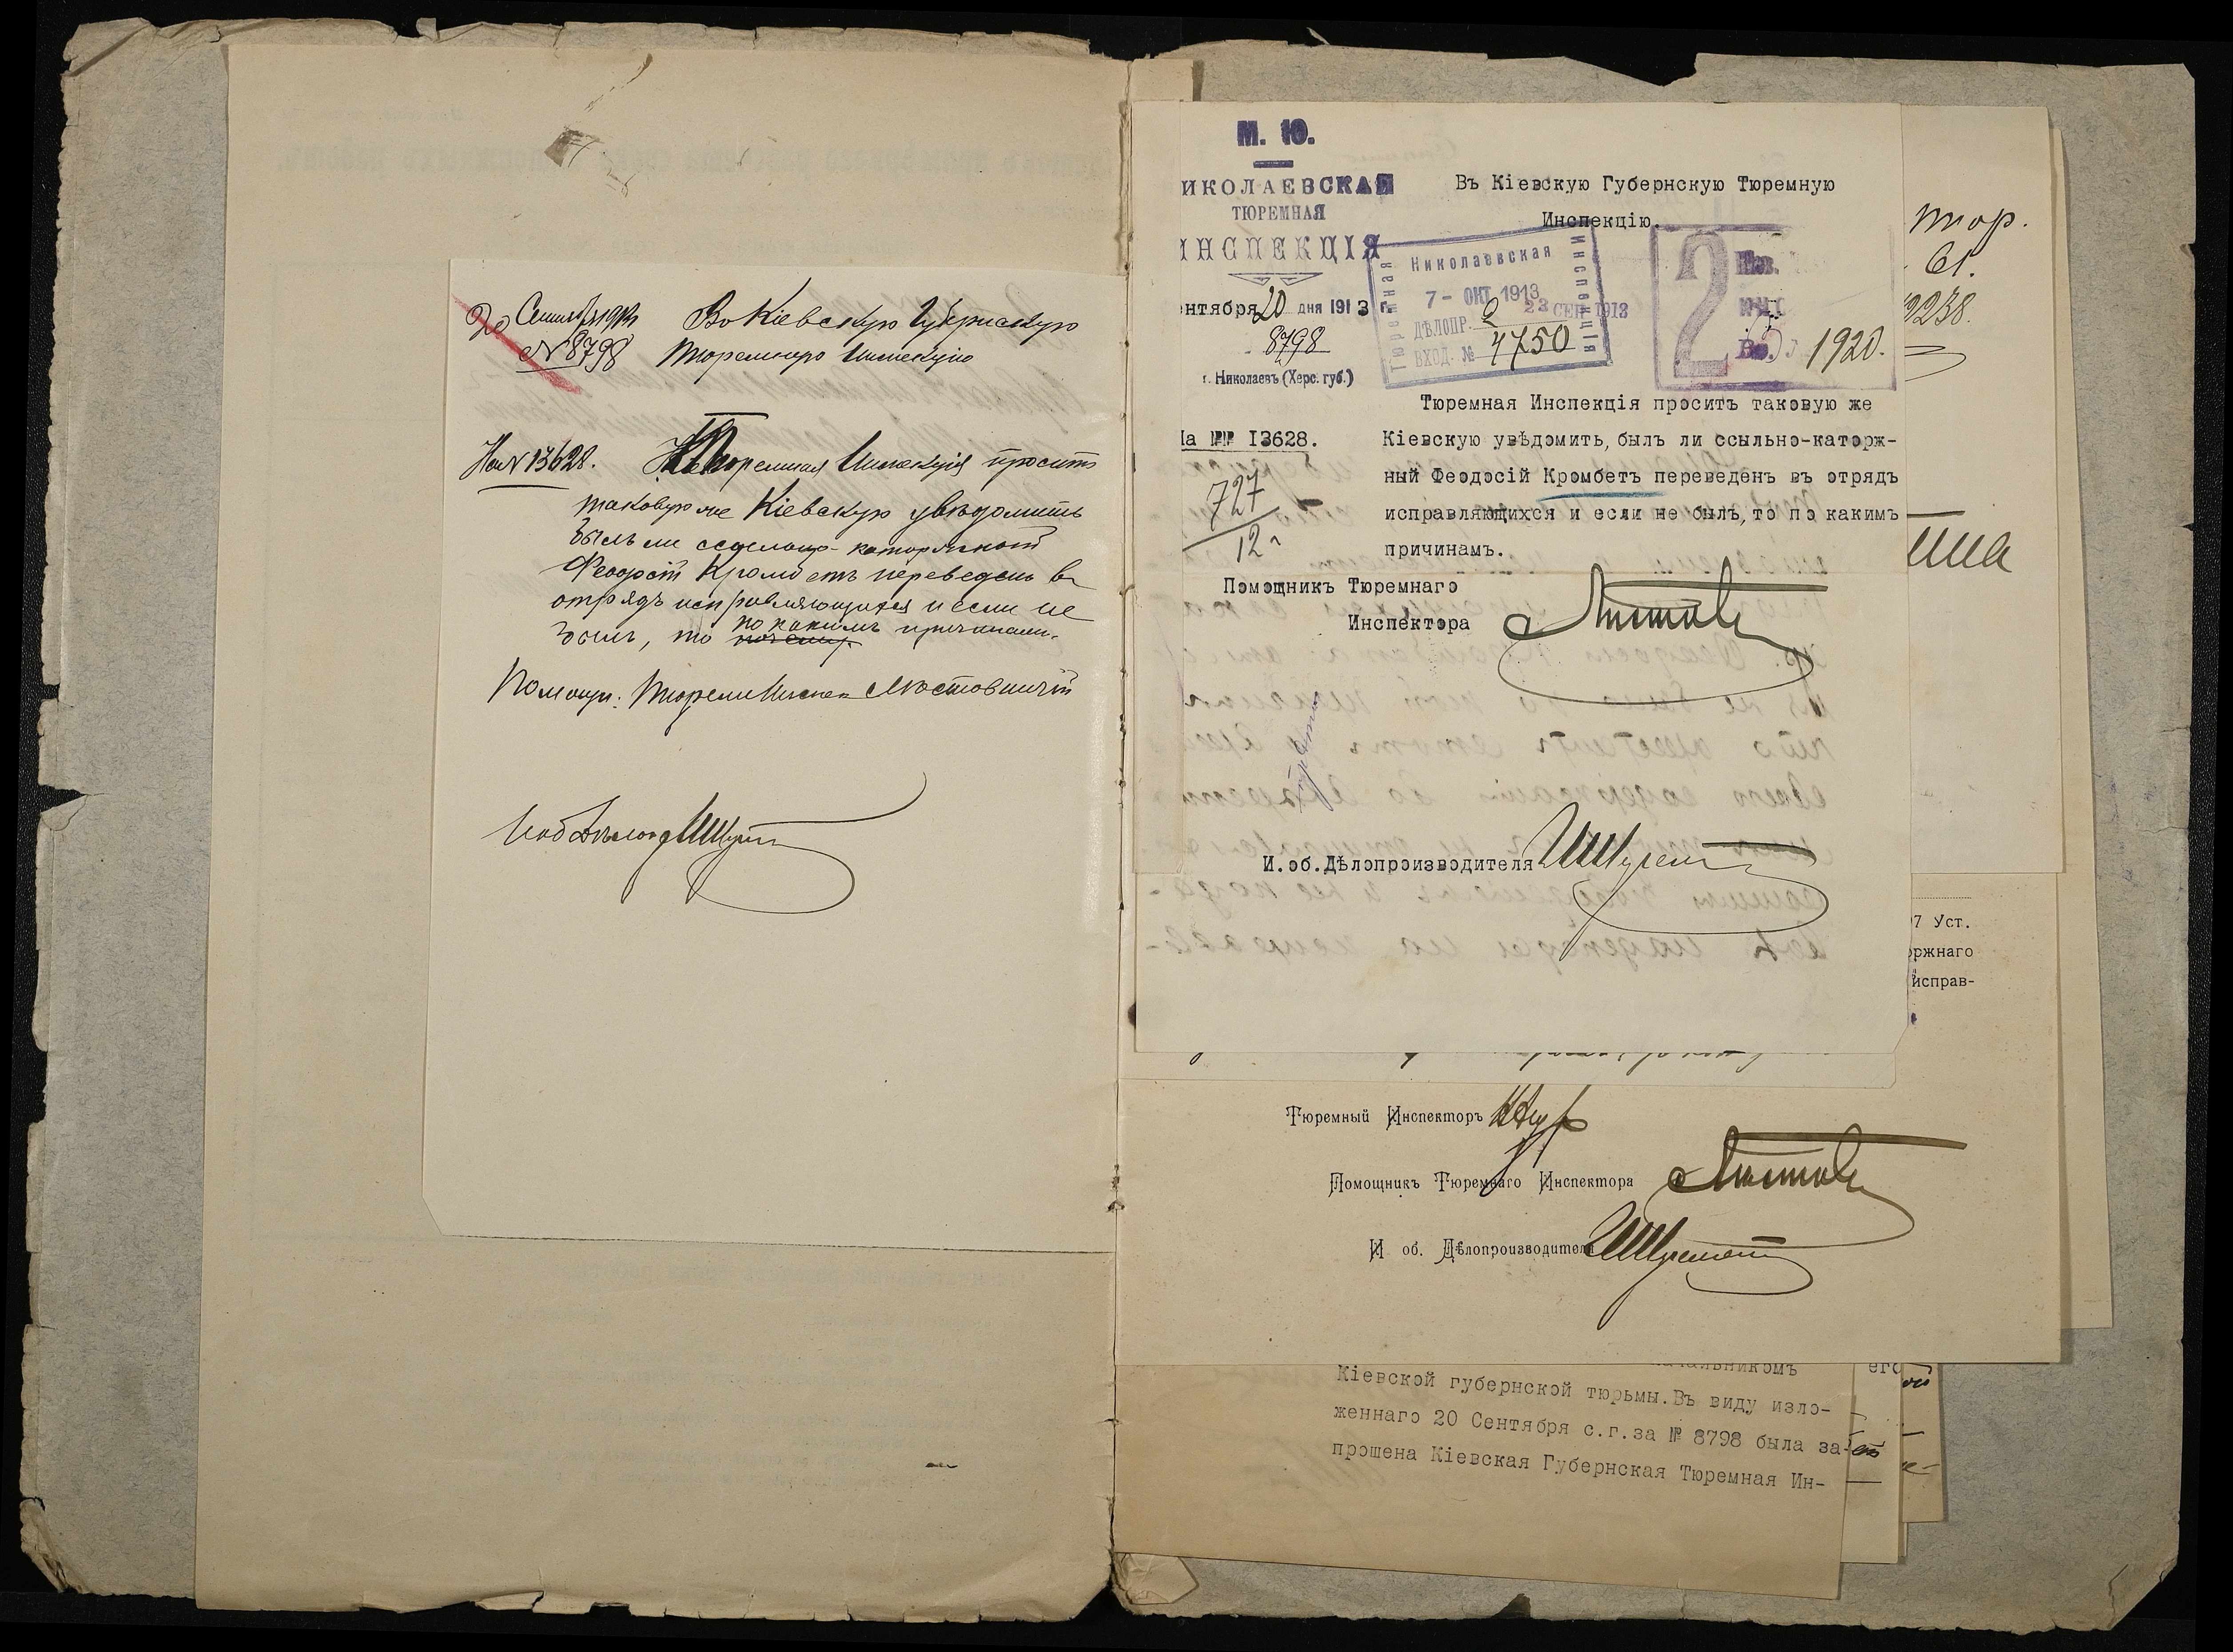 20 Сентября 1913
№ 8798
Въ Кіевскую Губернскую
Тюремную Инспекцію
На № 13628.
Тюремная Инспекція проситъ
таковую же Кіевскую увѣдомить
былъ ли ссыльно-каторжный
Феодосій Кромбетъ переведенъ въ
отрядъ исправляющихся и если не
былъ, то почему по какимъ причинамъ.
Помощн. Тюремн Инспек
И об Дѣлопр
М. Ю.
ИКОЛАЕВСКАЯ
ТЮРЕМНАЯ
ИНСПЕКЦІЯ
ентября 20 дня 1913 г.
8798
г. Николаевъ (Херс. губ.)
Въ Кіевскую Губернскую Тюремную
Инспекцію.
Николаевская
Тюремная
Инспекція
7 - ОКТ 1913
23 СЕН 1913
ДѢЛОПР. 2
ВХОД. № 4750
2
1920.
На №№ 13628.
727
12
Тюремная Инспекція проситъ таковую же
Кіевскую увѣдомить, былъ ли ссыльно-каторж-
ный Феодосій Кромбетъ переведенъ въ отрядъ
исправляющихся и если не былъ, то по какимъ
причинамъ.
Помощникъ Тюремнаго
Инспектора
И.об.Дѣлопроизводителя
Тюремный Инспекторъ
Помощникъ Тюремнаго Инспектора
И об. Дѣлопроизводителя
тюр.
9238.
7 Уст.
оржнаго
исправ-
чальникомъ
Кіевской губернской тюрьмы. Въ виду изло-
женнаго 20 Сентября с.г. за № 8798 была за-
прошена Кіевская Губернская Тюремная Ин-
его